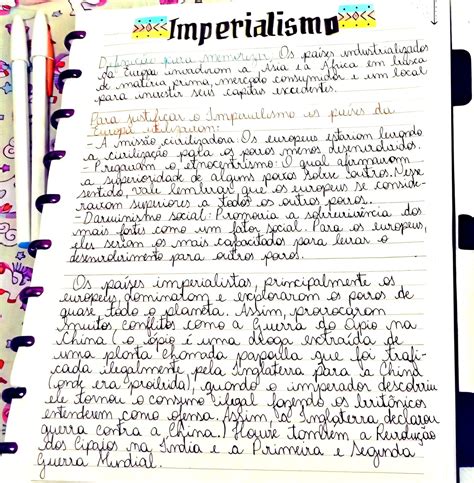 Imperialismo
Definição para memorizar: Os países industrializados
da Europa invadiram a Ásia e a África em busca
de matéria prima, mercado consumidor e um local
para investir seus capitais excedentes.
Para justificar o Imperialismo os países da
Europa utilizaram:
- A missão civilizadora: Os europeus estariam levando
a civilização para os povos menos desenvolvidos.
- Pregavam o etnocentrismo: O qual afirmavam
a superioridade de alguns povos sobre outros. Nesse
sentido, vale lembrar que os europeus se conside-
ravam superiores a todos os outros povos.
- Darwinismo social: Promovia a sobrevivência dos
mais fortes como um fator social. Para os europeus,
eles seriam os mais capacitados para levar o
desenvolvimento para outros povos.
Os países imperialistas, principalmente os
europeus, dominaram e exploraram os povos de
quase todo o planeta. Assim, provocaram
muitos conflitos como a Guerra do Ópio na
China (o ópio é uma droga extraída de
uma planta chamada papoulla que foi trafi-
cada ilegalmente pela Inglaterra para a China
(onde era proibida), quando o imperador descobriu
ele tornou o consumo ilegal fazendo os britânicos
entenderem como ofensa. Assim, a Inglaterra declarou
guerra contra a China.) Houve também a Revolução
dos Cipaios na Índia e a Primeira e Segunda
Guerra Mundial.